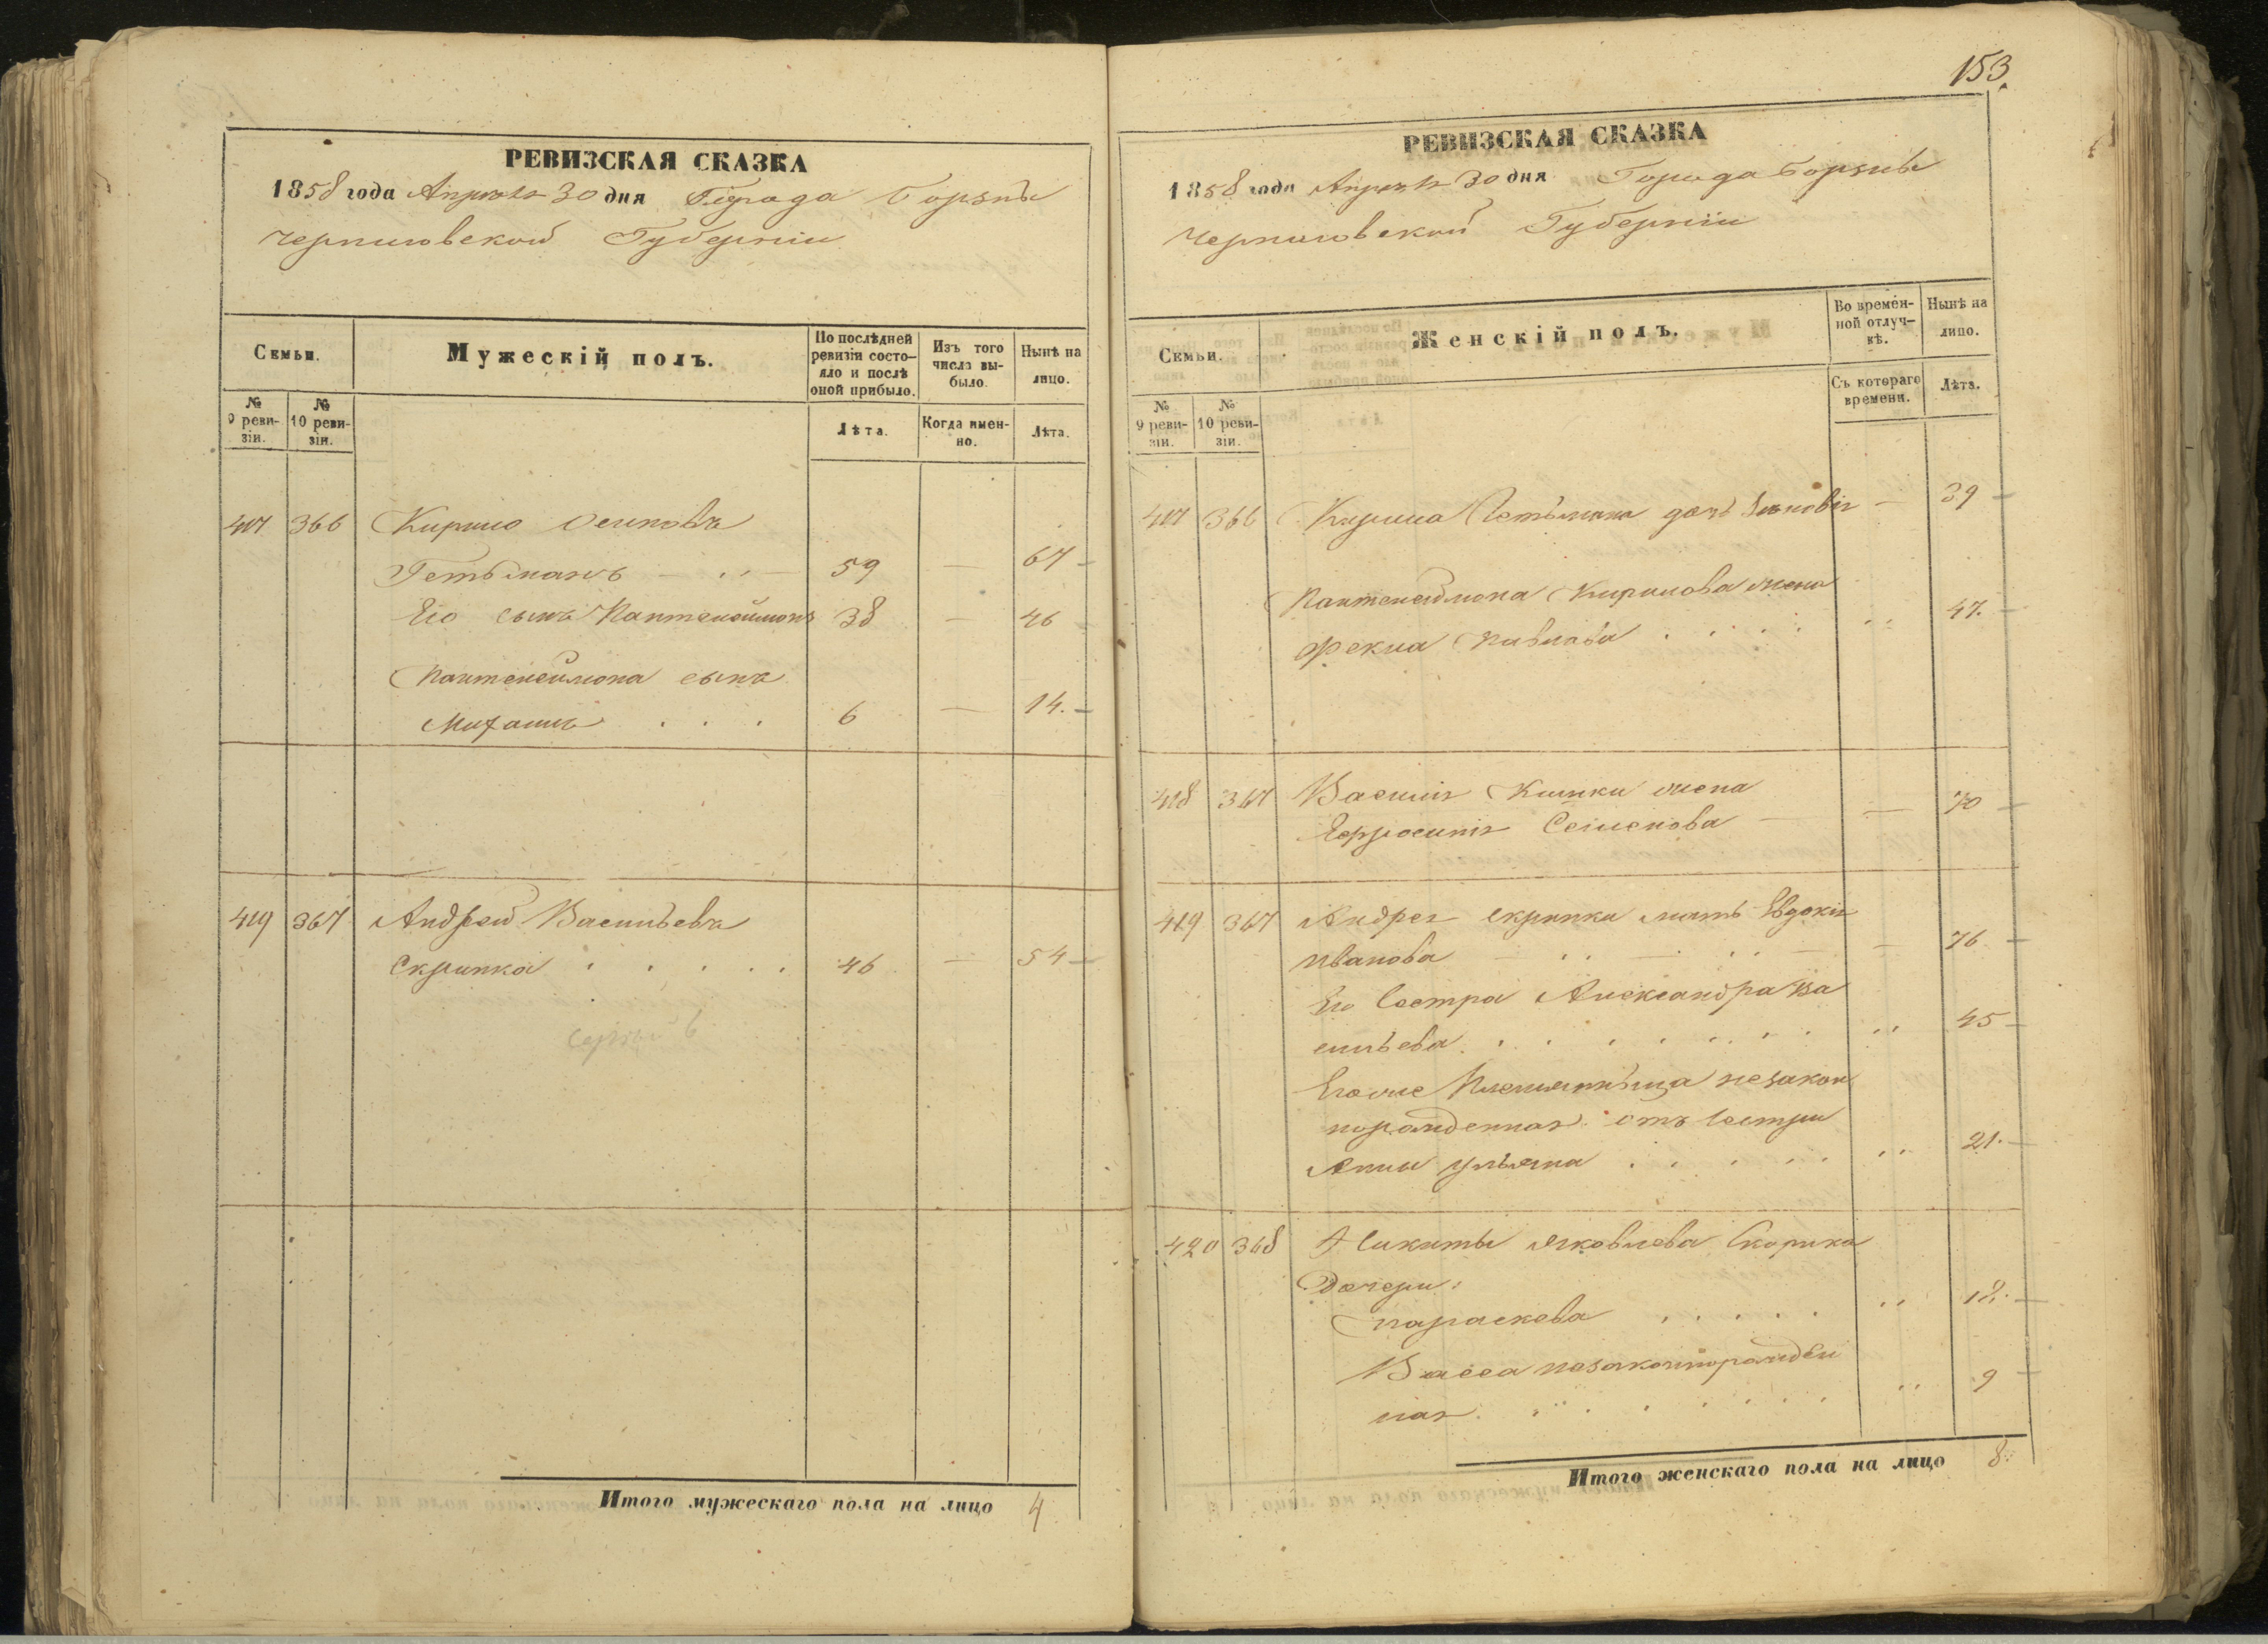 РЕВИЗСКАЯ СКАЗКА
1858 года Апреля 30 дня Города Борзны
Черниговской Губерніи
Семьи.
Мужескій полъ.
По послѣдней ревизіи состо-
яло и послѣ
оной прибыло.
Изъ того
числа вы-
было.
Нынѣ на
лицо.
№
9 реви-
зіи.
№
10 реви-
зіи.
Лѣта.
Когда имен-
но.
Лѣта.
417 366 Кирило Осиповъ
Гетьманъ — 59 — 67 —
Его сынъ Пантелеймонъ 38 — 46
Пантелеймона сынъ
Михаилъ . . . 6 — 14. —
419 367 Андрей Васильевъ
Скрипка . . . . . 46 — 54 —
Итого мужескаго пола на лицо 4
153.
РЕВИЗСКАЯ СКАЗКА
1858 года Апреля 30 дня Города Борзны
Черниговской Губерніи
Семьи.
Женскій полъ.
Во времен-
ной отлуч-
кѣ.
Нынѣ на
лицо.
№
9 реви-
зіи.
№
10 реви-
зіи.
Съ котораго
времени.
Лѣта.
417 366 Кирила Гетьмана дочь — 39 —
Пантелеймона Кирилова жена
Фекла Павлова . . . . 47. —
418 367 Василія жена
Ефросинія Семенова — — 70 —
419 367 Андрея Скрипки мать Евдокія
Иванова — — 76 —
Его Сестра Александра Ва
сильева . . . . . . 45 —
Егоже Племянница незакон
норожденная отъ Сестры
Анны Ульяна . . . . . 21. —
420 368 Никиты Яковлева Скорика
Дочери:
Параскева . . . . . 18. —
Васса незаконнорожден
ная . . . . . . . 9 —
Итого женскаго пола на лицо 8.